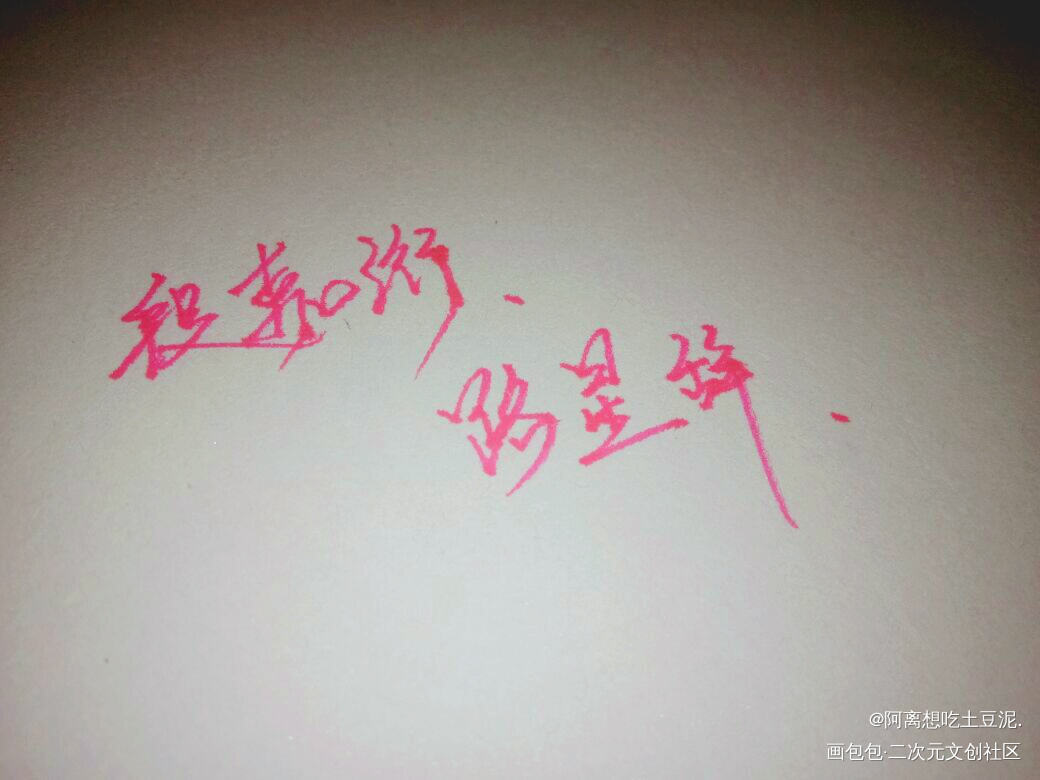 程嘉衍.
路星辞.
@阿离想吃土豆泥.
画包包·二次元文创社区